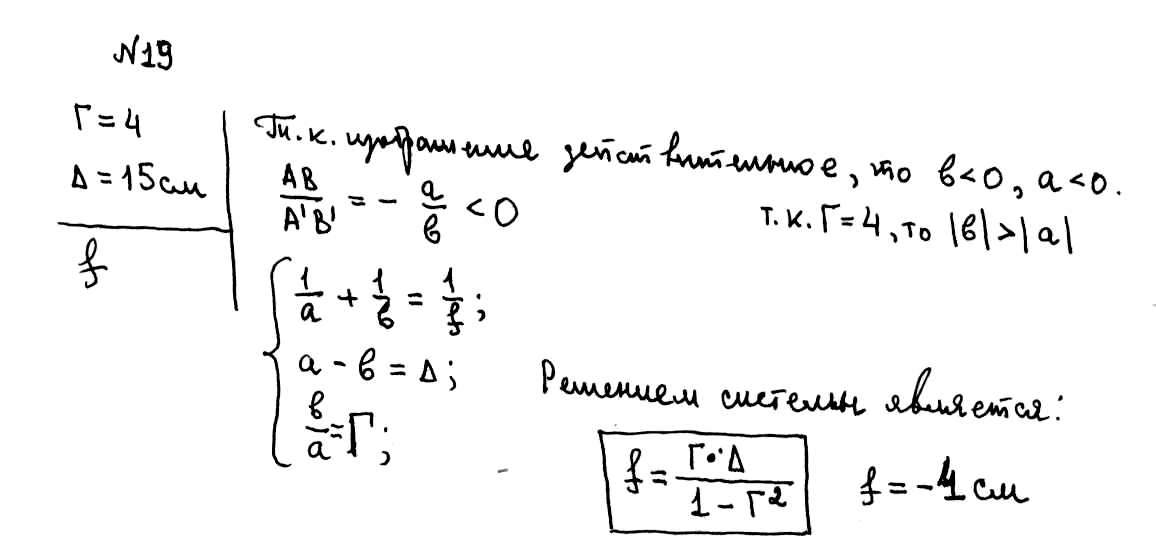 №19
Г = 4
Δ = 15 см
f
Т.к. изображение действительное, то b<0, a<0.
AB/A'B' = - a/b < 0
т.к. Г=4, то |b|>|a|
1/a + 1/b = 1/f;
a - b = Δ;
b/a = Г;
Решением системы является:
f = Г·Δ/(1 - Г²)
f = -4 см